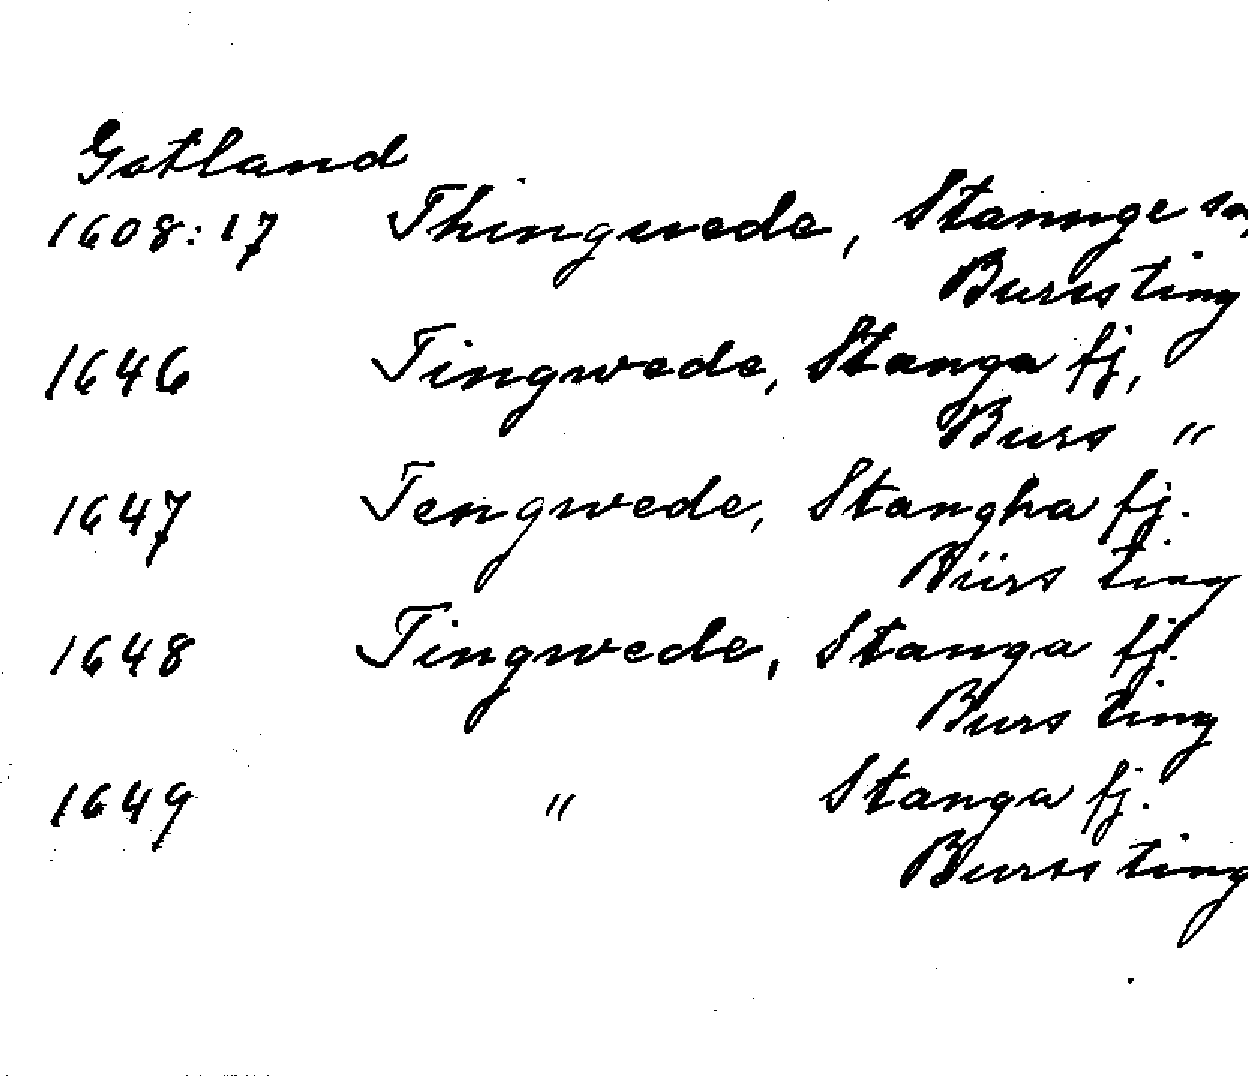 Gotland
1608:17 Thingwede, Stannge sn,
Burss ting
1646 Tingwede, Stanga fj,
Burs "
1647 Tengwede, Stangha fj.
Bürs ting
1648 Tingwede, Stanga fj.
Burs ting
1649 " Stanga fj.
Burss ting